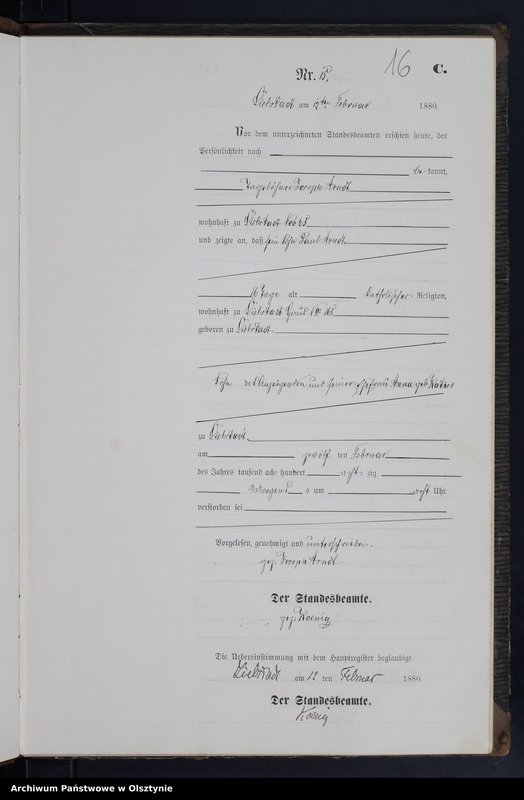 16 C.
Nr. 15.
Liebstadt am 12ten Februar 1880.
Vor dem unterzeichneten Standesbeamten erschien heute, der
Persönlichkeit nach
be kannt,
Tagelöhner Joseph Arndt
wohnhaft zu Liebstadt
und zeigte an, daß sein Sohn Paul Arndt
16 Tage alt katholischer Religion,
wohnhaft zu Liebstadt Haus No
geboren zu Liebstadt
Sohn des Anzeigenden und seiner Ehefrau Anna geb.
zu Liebstadt
am zwölf ten Februar
des Jahres tausend acht hundert acht zig
Morgens um acht Uhr
verstorben sei
Vorgelesen, genehmigt und unterschrieben.
gez. Joseph Arndt
Der Standesbeamte.
gez. Koenig
Die Uebereinstimmung mit dem Hauptregister beglaubigt.
Liebstadt am 12 ten Februar 1880.
Der Standesbeamte.
Koenig
Archiwum Państwowe w Olsztynie